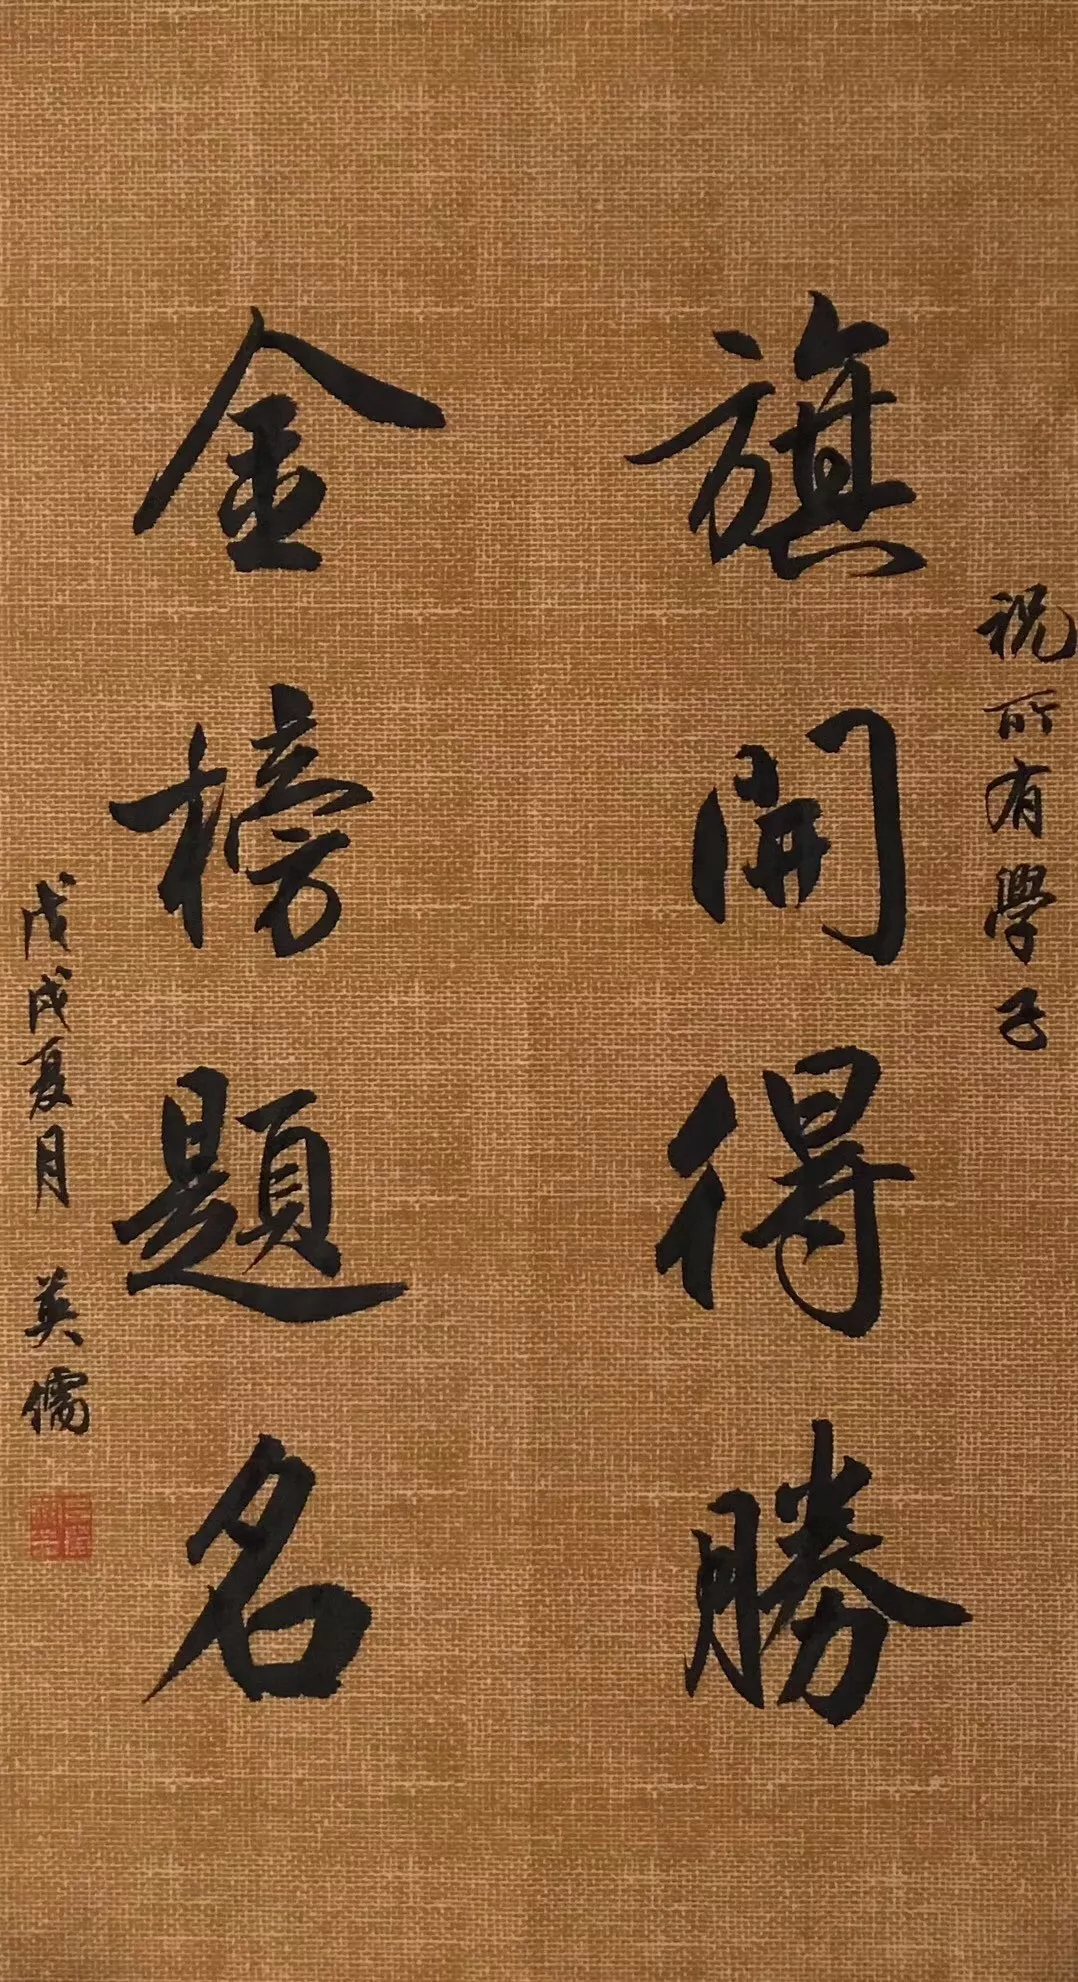 祝所有學子
旗開得勝
金榜題名
戊戌夏月 英儒